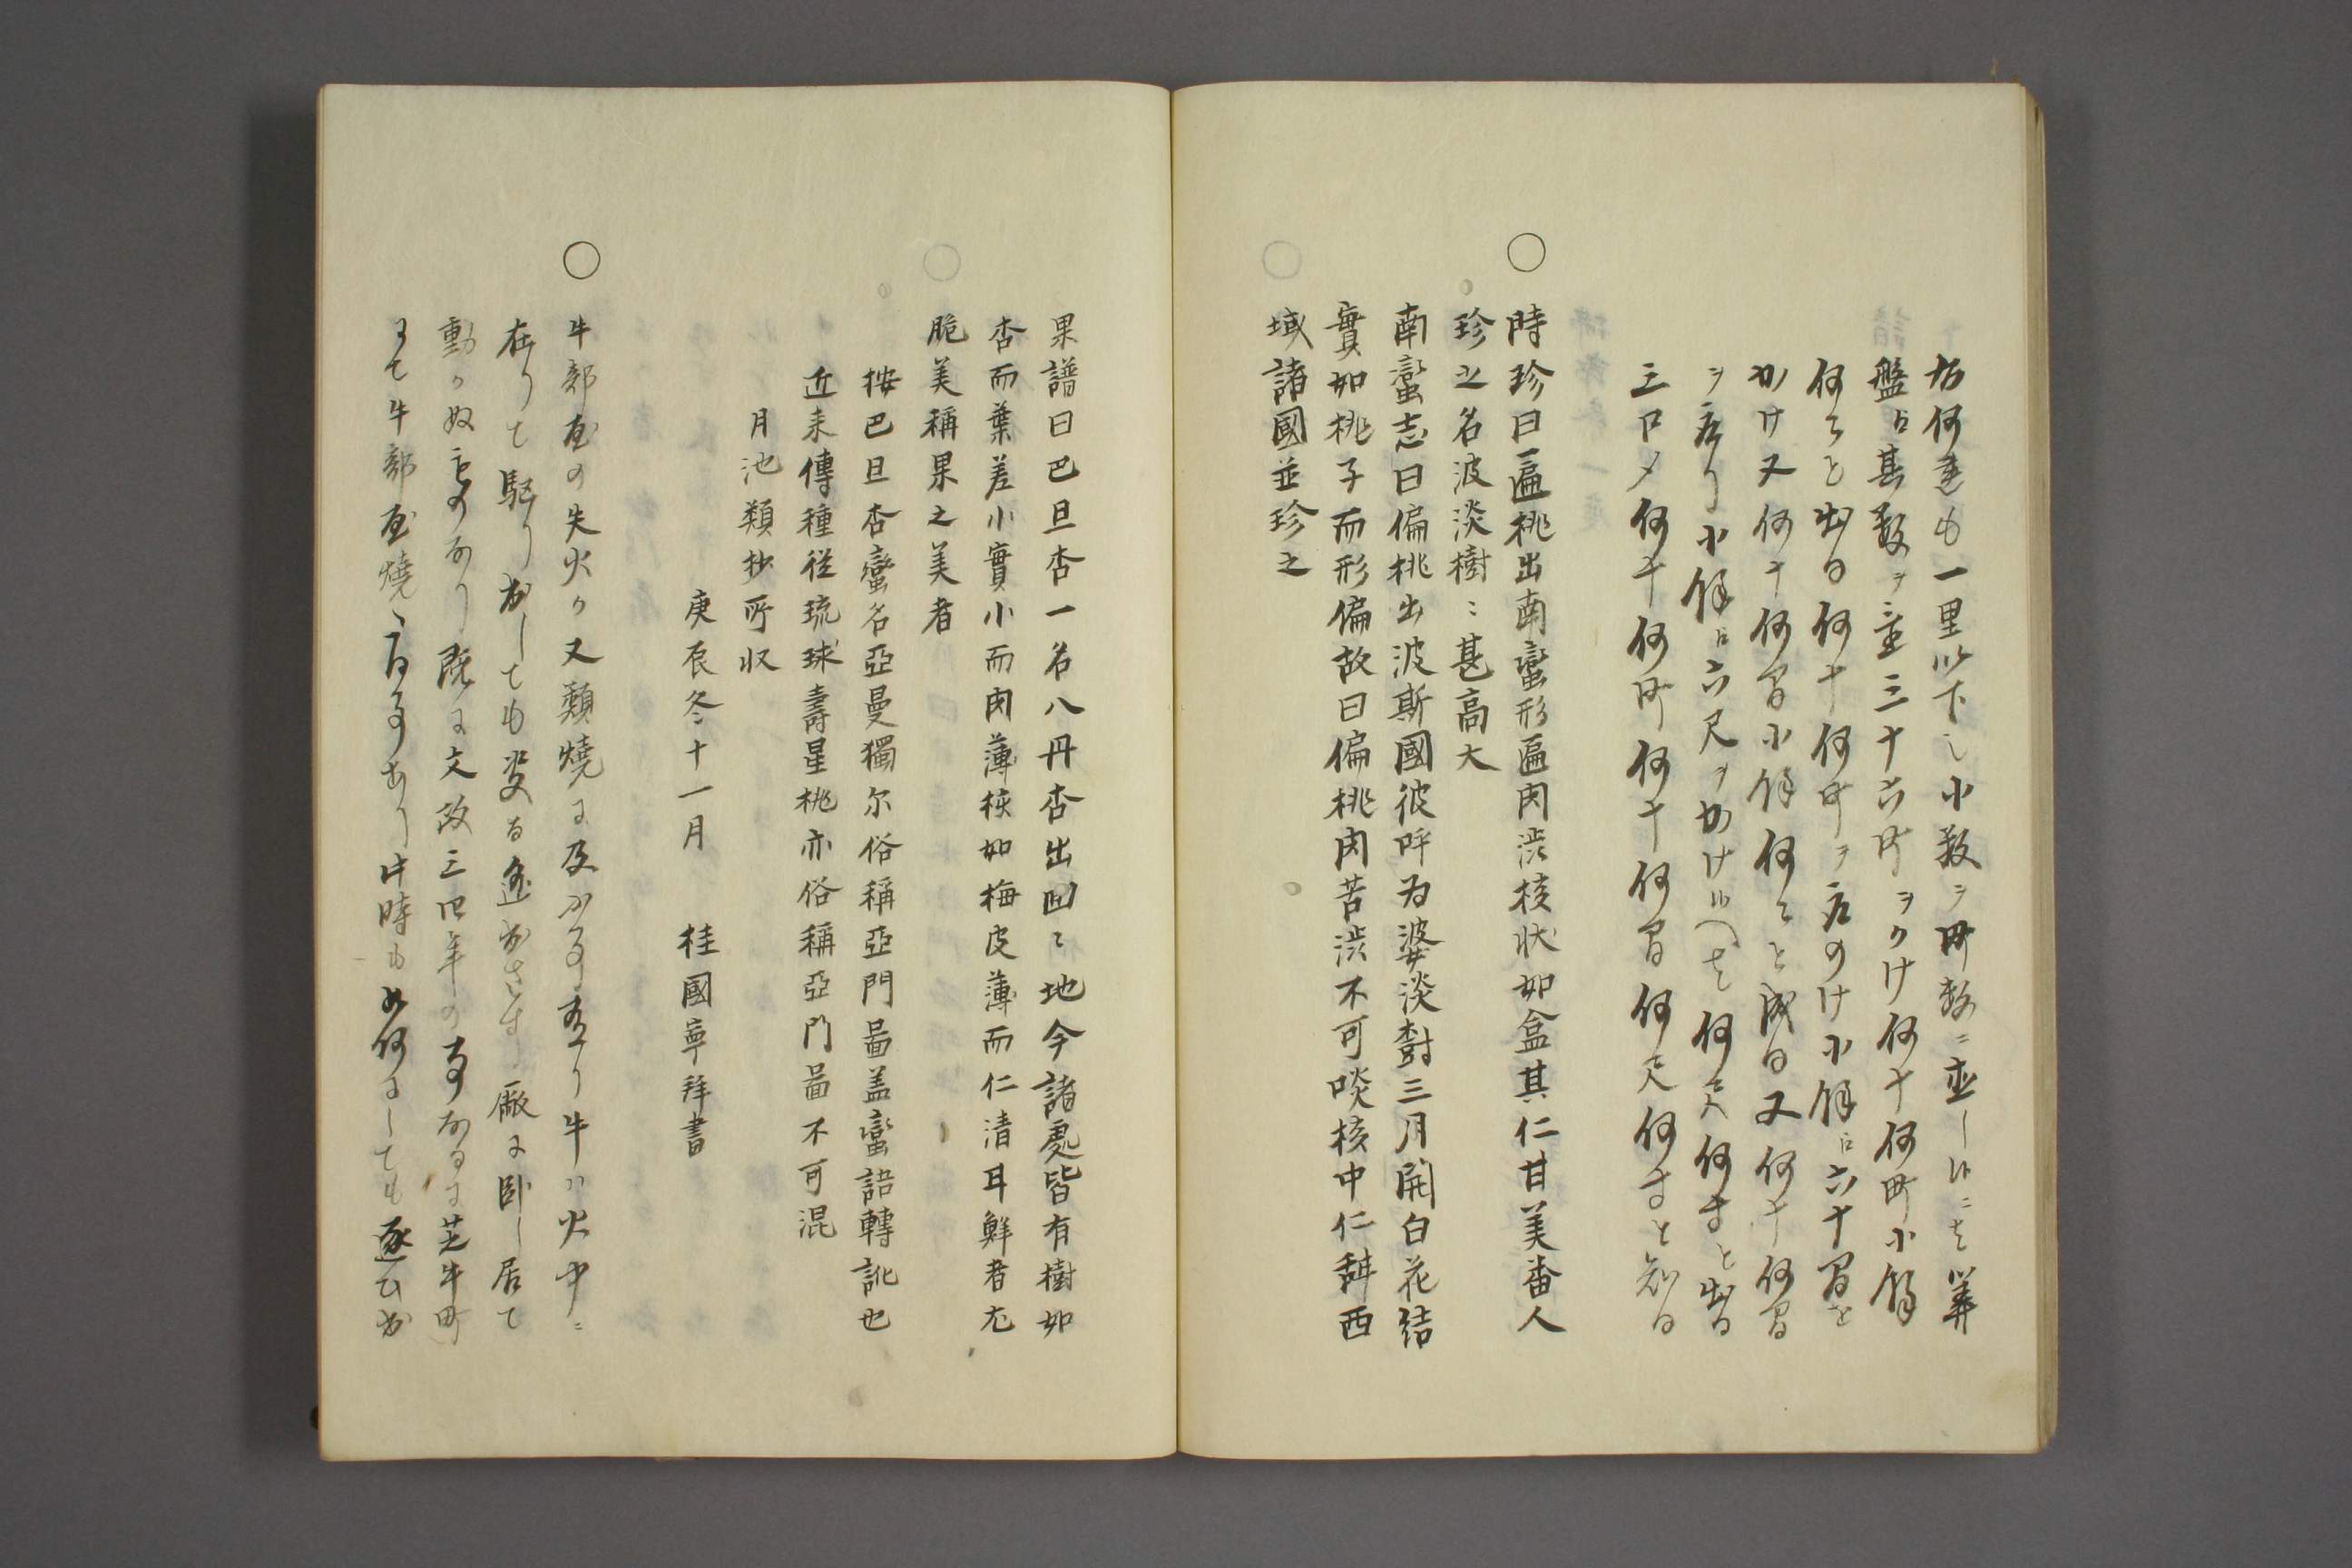 方何建も一里以下之小数ヲ町数ニ直し候ニも算
盤ニ其数ヲ置三十六町ヲかけ何十何町小餘
何々と出る何十何町ヲ底のけ小餘ニ六十間を
かけ又何十何間小餘何々と成る又何十何間
ヲ底り小餘ニ六尺ヲかけ候へも何尺何寸と出る
三口〆何十何町何十何間何尺何寸と知る
○時珍曰匾桃出南蠻形匾肉澁核状如盒其仁甘美番人
珍之名波淡樹〻甚高大
南蠻志曰偏桃出波斯國彼呼為婆淡樹三月開白花結
實如桃子而形偏故曰偏桃肉苦澁不可啖核中仁甜西
域諸國並珍之
果譜曰巴旦杏一名八丹杏出回〻地今諸處皆有樹如
杏而葉差小實小而肉薄核如梅皮薄而仁清耳鮮者尤
脆美稱果之美者
按巴旦杏蠻名亞曼獨尓俗稱亞門畐盖蠻語轉訛也
近来傳種從琉球壽星桃亦俗稱亞門畐不可混
月池類抄所収
庚辰冬十一月　桂國寧拜書
○牛部屋の失火か又類燒に及ふ事有り牛ハ火中ニ
在りて駆り出しても更る逃出さす廠に臥し居て
動かぬものなり既に文政三四年の事なるに芝牛町
にて牛部屋燒る事あり此時も如何にしても逐ひ出